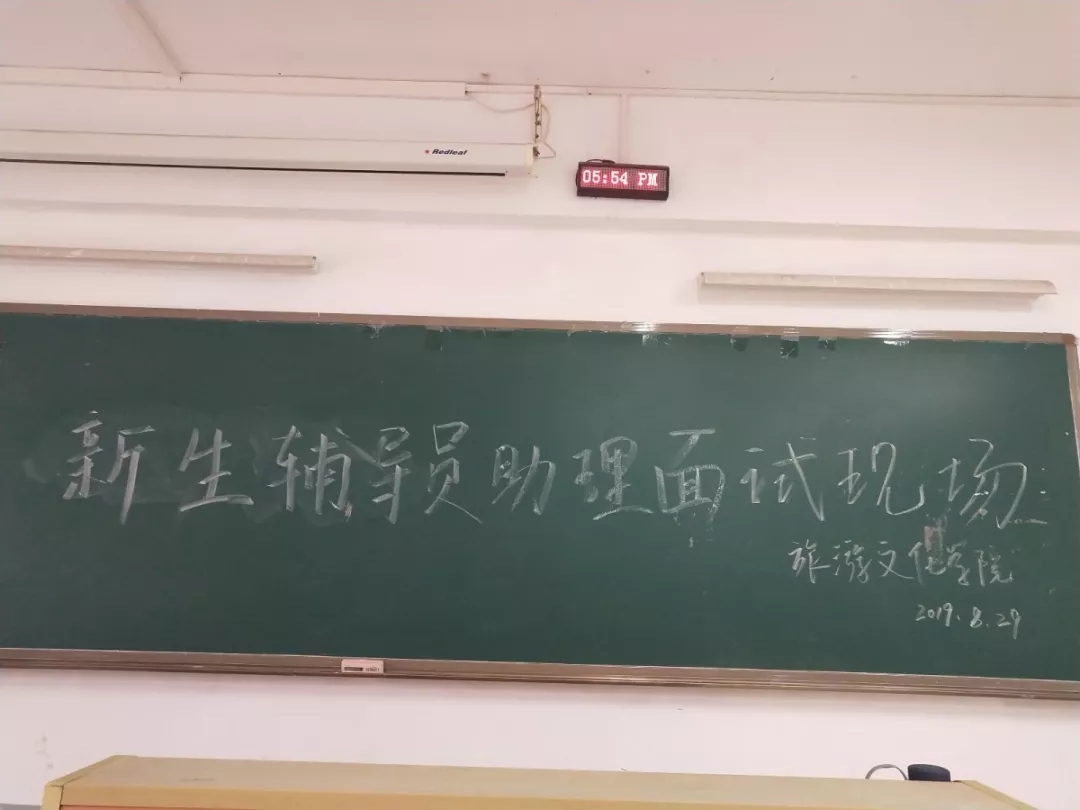 Redleaf
05:54 PM
新生辅导员助理面试现场
旅游文化学院
2019.8.29